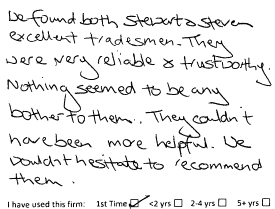 We found both Stewart & Steven
excellent tradesmen. They
were very reliable & trustworthy.
Nothing seemed to be any
bother to them. They couldn't
have been more helpful. We
wouldn't hesitate to recommend
them.
I have used this firm: 1st Time ☑ <2 yrs ☐ 2-4 yrs ☐ 5+ yrs ☐